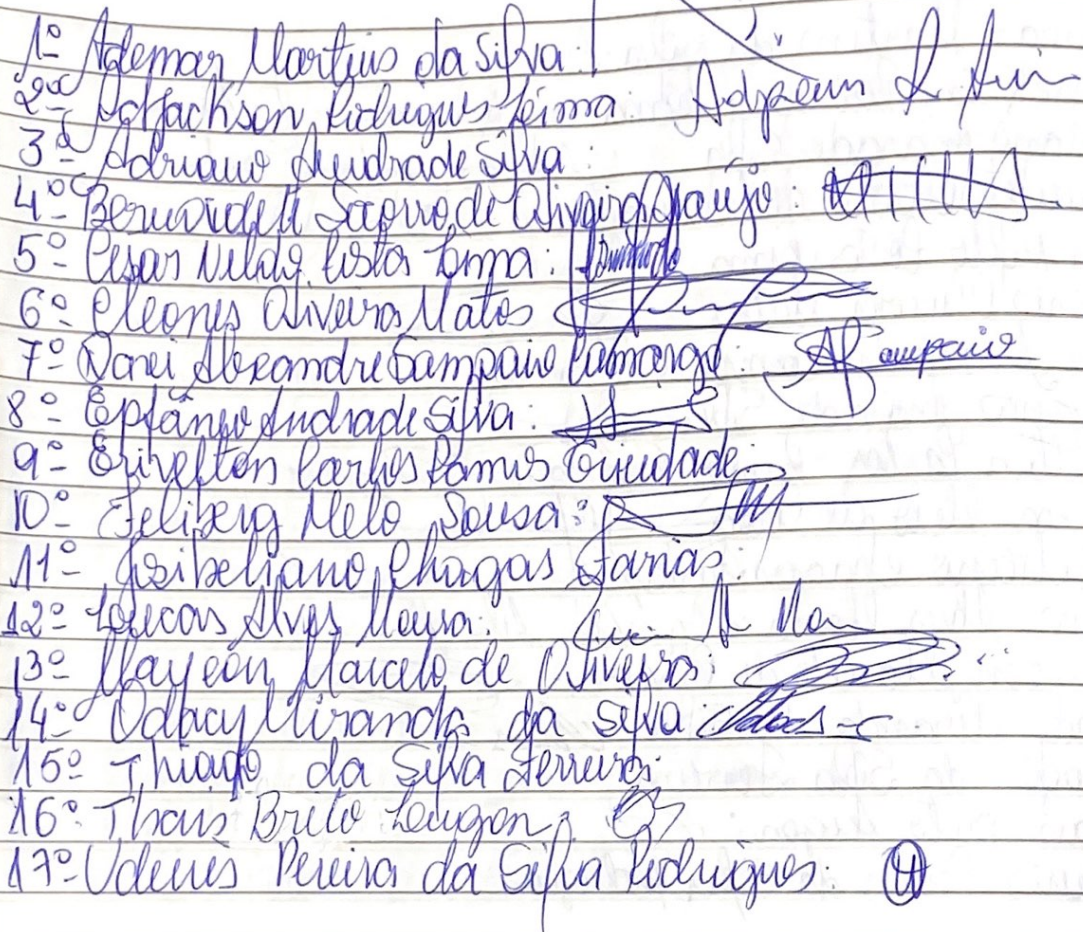 1º Ademar Martins da Silva:
2º Adjackson Rodrigues Lima:
3º Adriano Andrade Silva:
4º Bernardete Socorro de Oliveira Araújo:
5º Cesar Nildo Costa Lima:
6º Cleones Oliveira Matos
7º Danei Alexandre Sampaio Camargo: Sampaio
8º Epfânio Andrade Silva:
9º Erivelton Carlos Ramos Trindade:
10º Feliberg Melo Sousa:
11º Chagas Farias:
12º Luecas Alves Moura:
13º Maycon Marcelo de Oliveira:
14º Odacy Miranda da Silva:
15º Thiago da Silva Ferreira:
16º Thais Brito
17º Udenes Pereira da Silva Rodrigues: